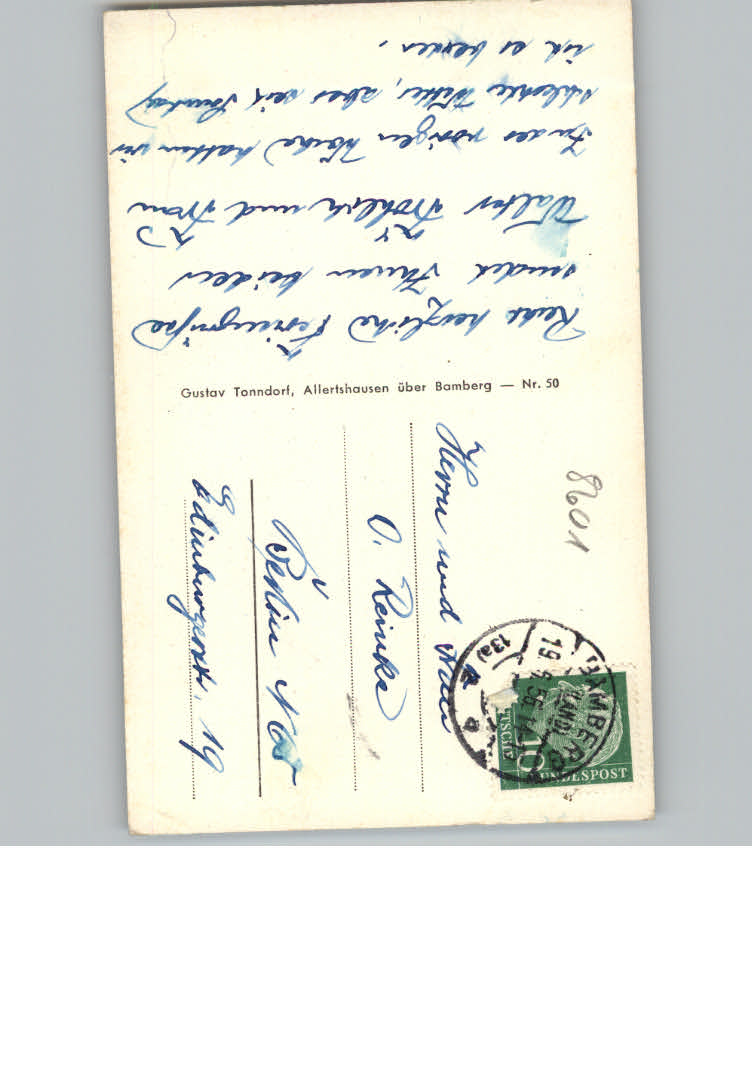 Recht herzliche Feriengrüße
sendet Ihnen beiden
Walter Fröhlich und Frau
In der vorigen Woche hatten wir
schlechtes Wetter, aber seit Sonntag
ist es besser.
Gustav Tonndorf, Allertshausen über Bamberg — Nr. 50
Herrn und Frau
O. Reinke
Berlin N 65
Edinburgerstr. 19
8601
13a
BAMBERG
(LAND)
a
10
BUNDESPOST